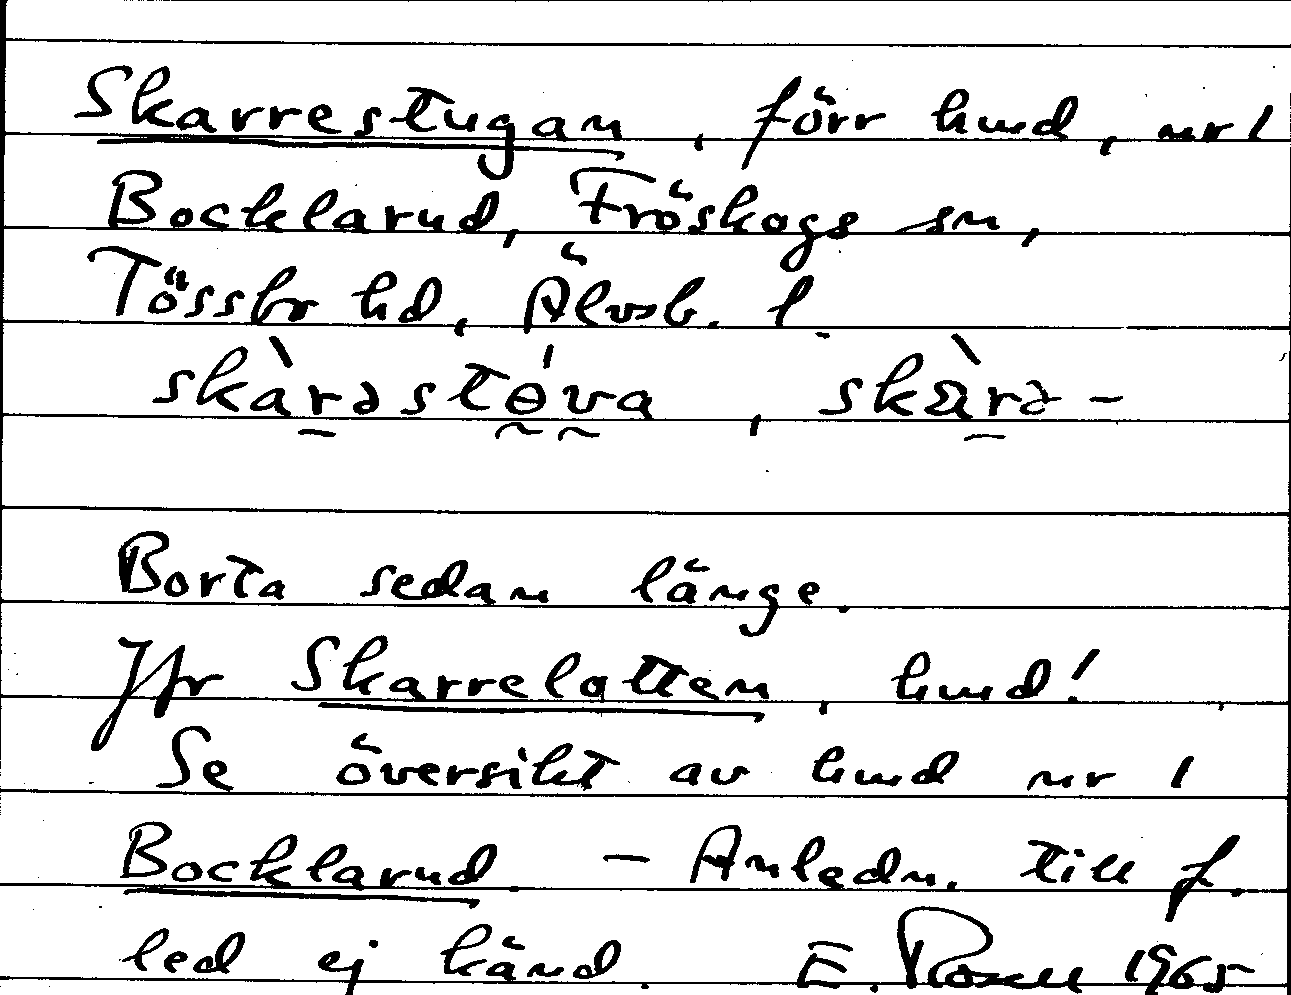 Skarrestugan, förr hmd, nr 1
Bocklarud, Fröskogs sn,
Tössbo hd, Älvsb. l.
skàrəstө́va, skàrə-
Borta sedan länge.
Jfr Skarrelotten, hmd!
Se översikt av hmd nr 1
Bocklarud - Anledn. till f.
led ej känd. E. Rosell 1965